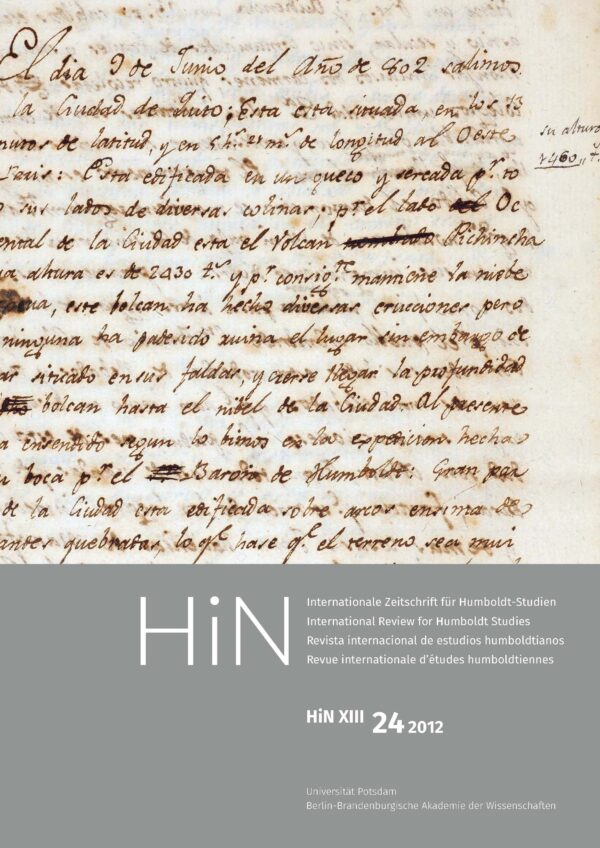 El dia 9 de Junio del Año de 802 salimos
la Ciudad de Quito; Esta esta situada, en los 13
nutos de latitud, y en 5 h.s 21 m.s de longitud al Oeste
Paris: Esta edificada en un queco y sercada p.r to
sus lados de diversas colinas; p.r el lado Oc
ental de la Ciudad esta el Volcan Pichincha
a altura es de 2430 t.s y p.r consig.te mantiene la niebe
este bolcan ha hecho diversas erucciones pero
ninguna ha padesido ruina el lugar sin embargo de
ar siticado en sus faldas, y cierse llegar la profundidad
bolcan hasta el nibel de la Ciudad. Al presente
a ensendido segun lo bimos en la expedicion hecha
u boca p.r el Baron de Humboldt: Gran par
de la Ciudad esta edificada sobre arcos ensima de
antes quebratas, lo q.e hase q.e el terreno sea mui
su altura
1460,, t.s
HiN
Internationale Zeitschrift für Humboldt-Studien
International Review for Humboldt Studies
Revista internacional de estudios humboldtianos
Revue internationale d'études humboldtiennes
HiN XIII 24 2012
Universität Potsdam
Berlin-Brandenburgische Akademie der Wissenschaften